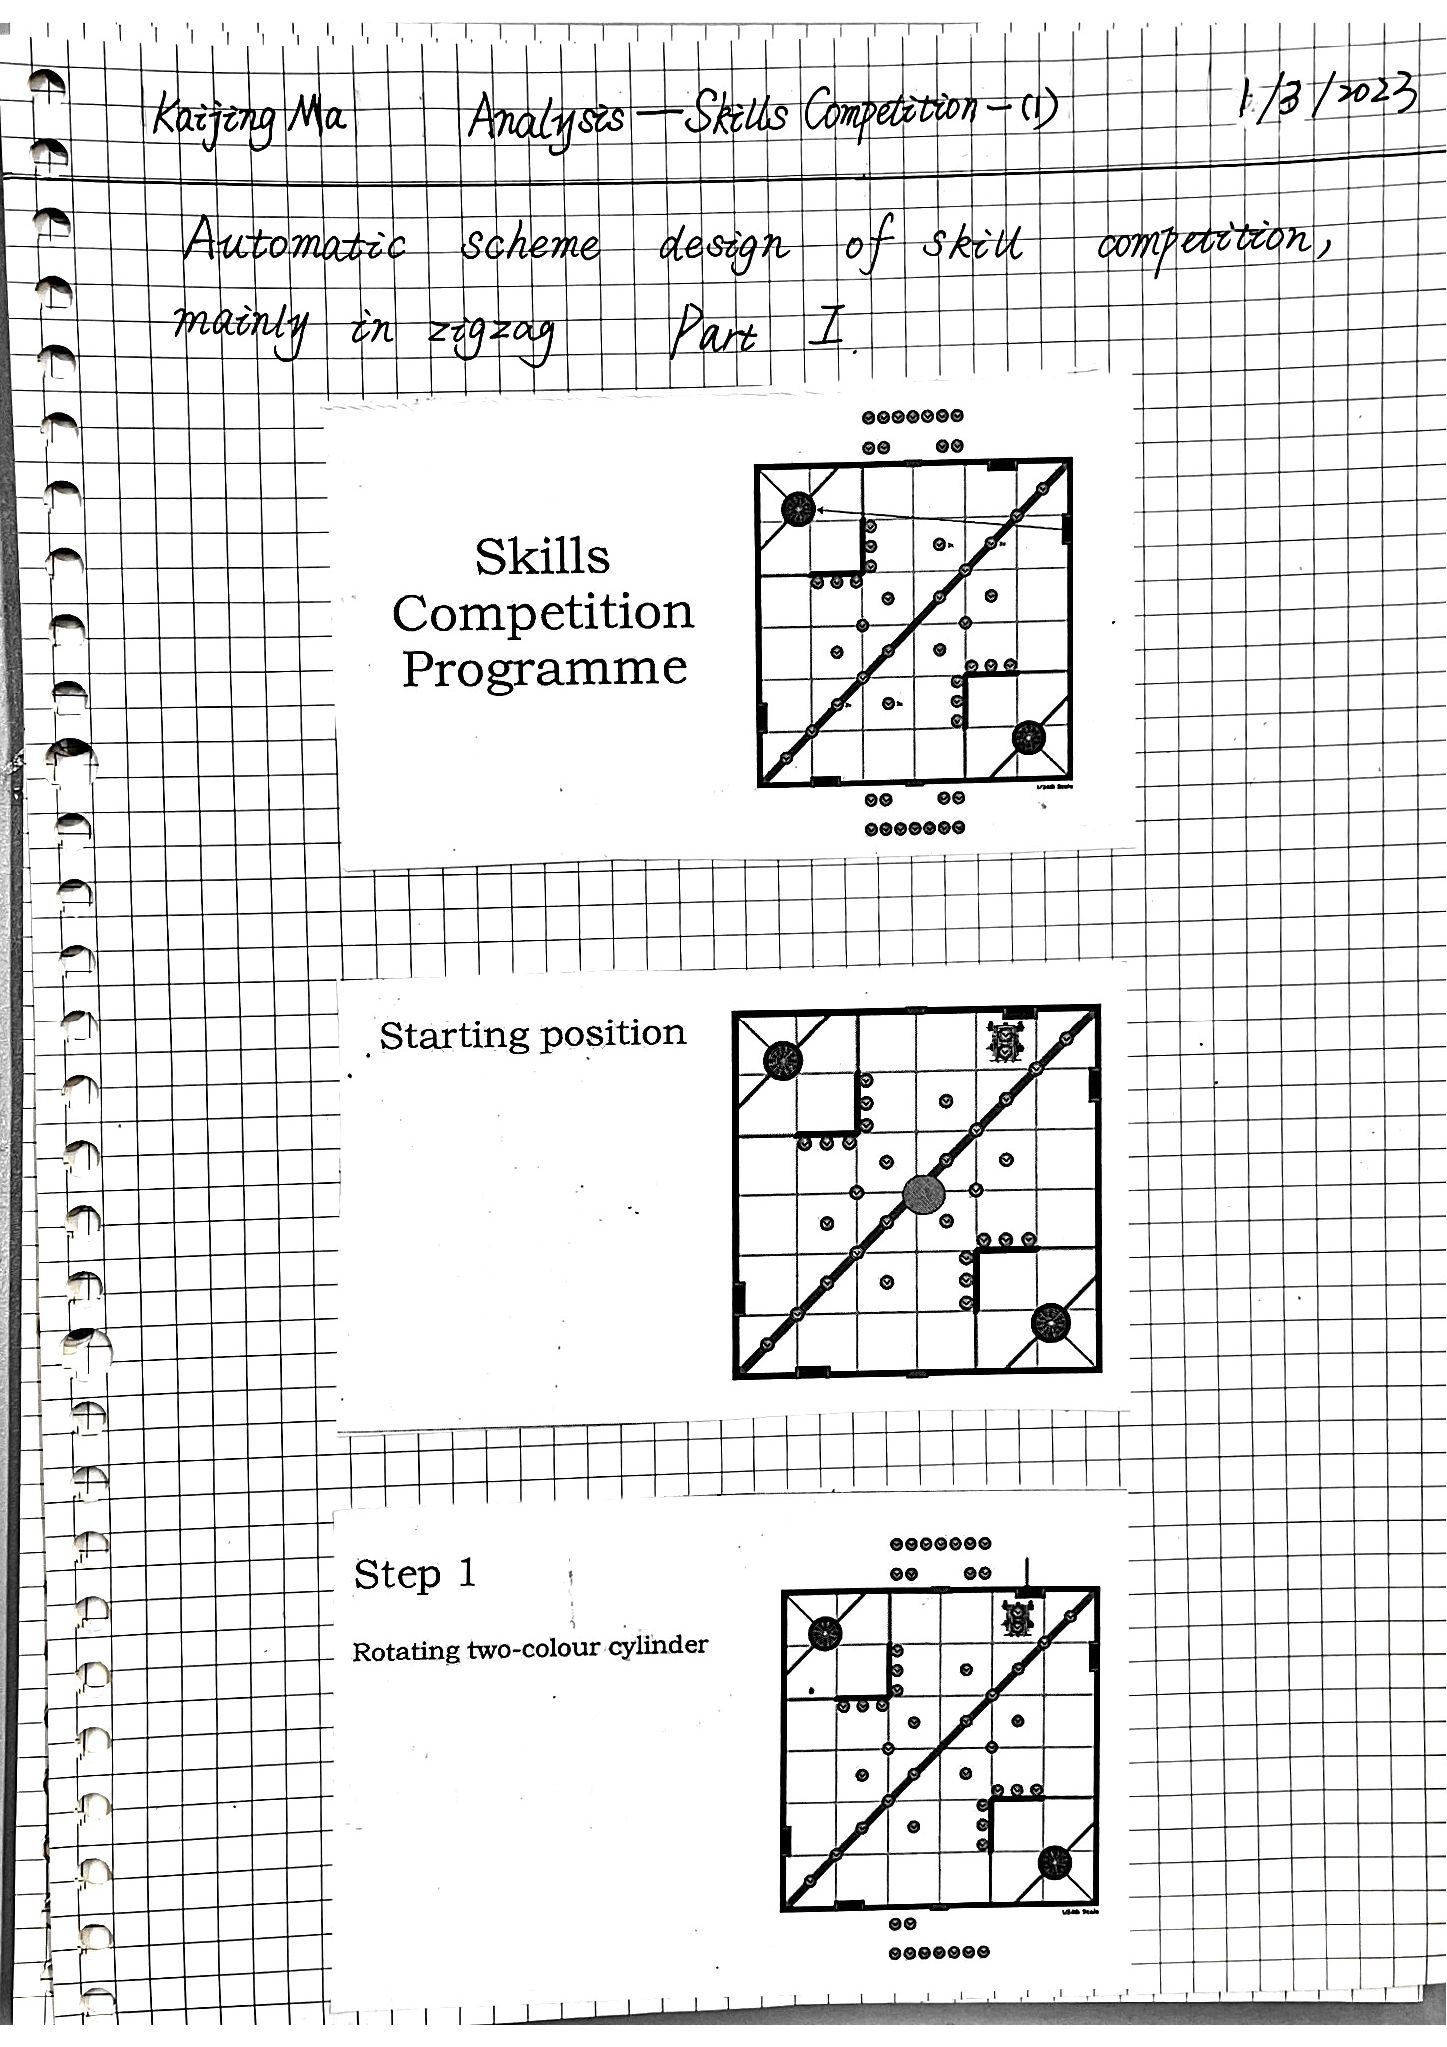 Kaijing Ma Analysis—Skills Competition-(1) 1/3/2023
Automatic scheme design of skill competition,
mainly in zigzag Part I.
Skills
Competition
Programme
1/24th Scale
Starting position
Step 1
Rotating two-colour cylinder
1/24th Scale